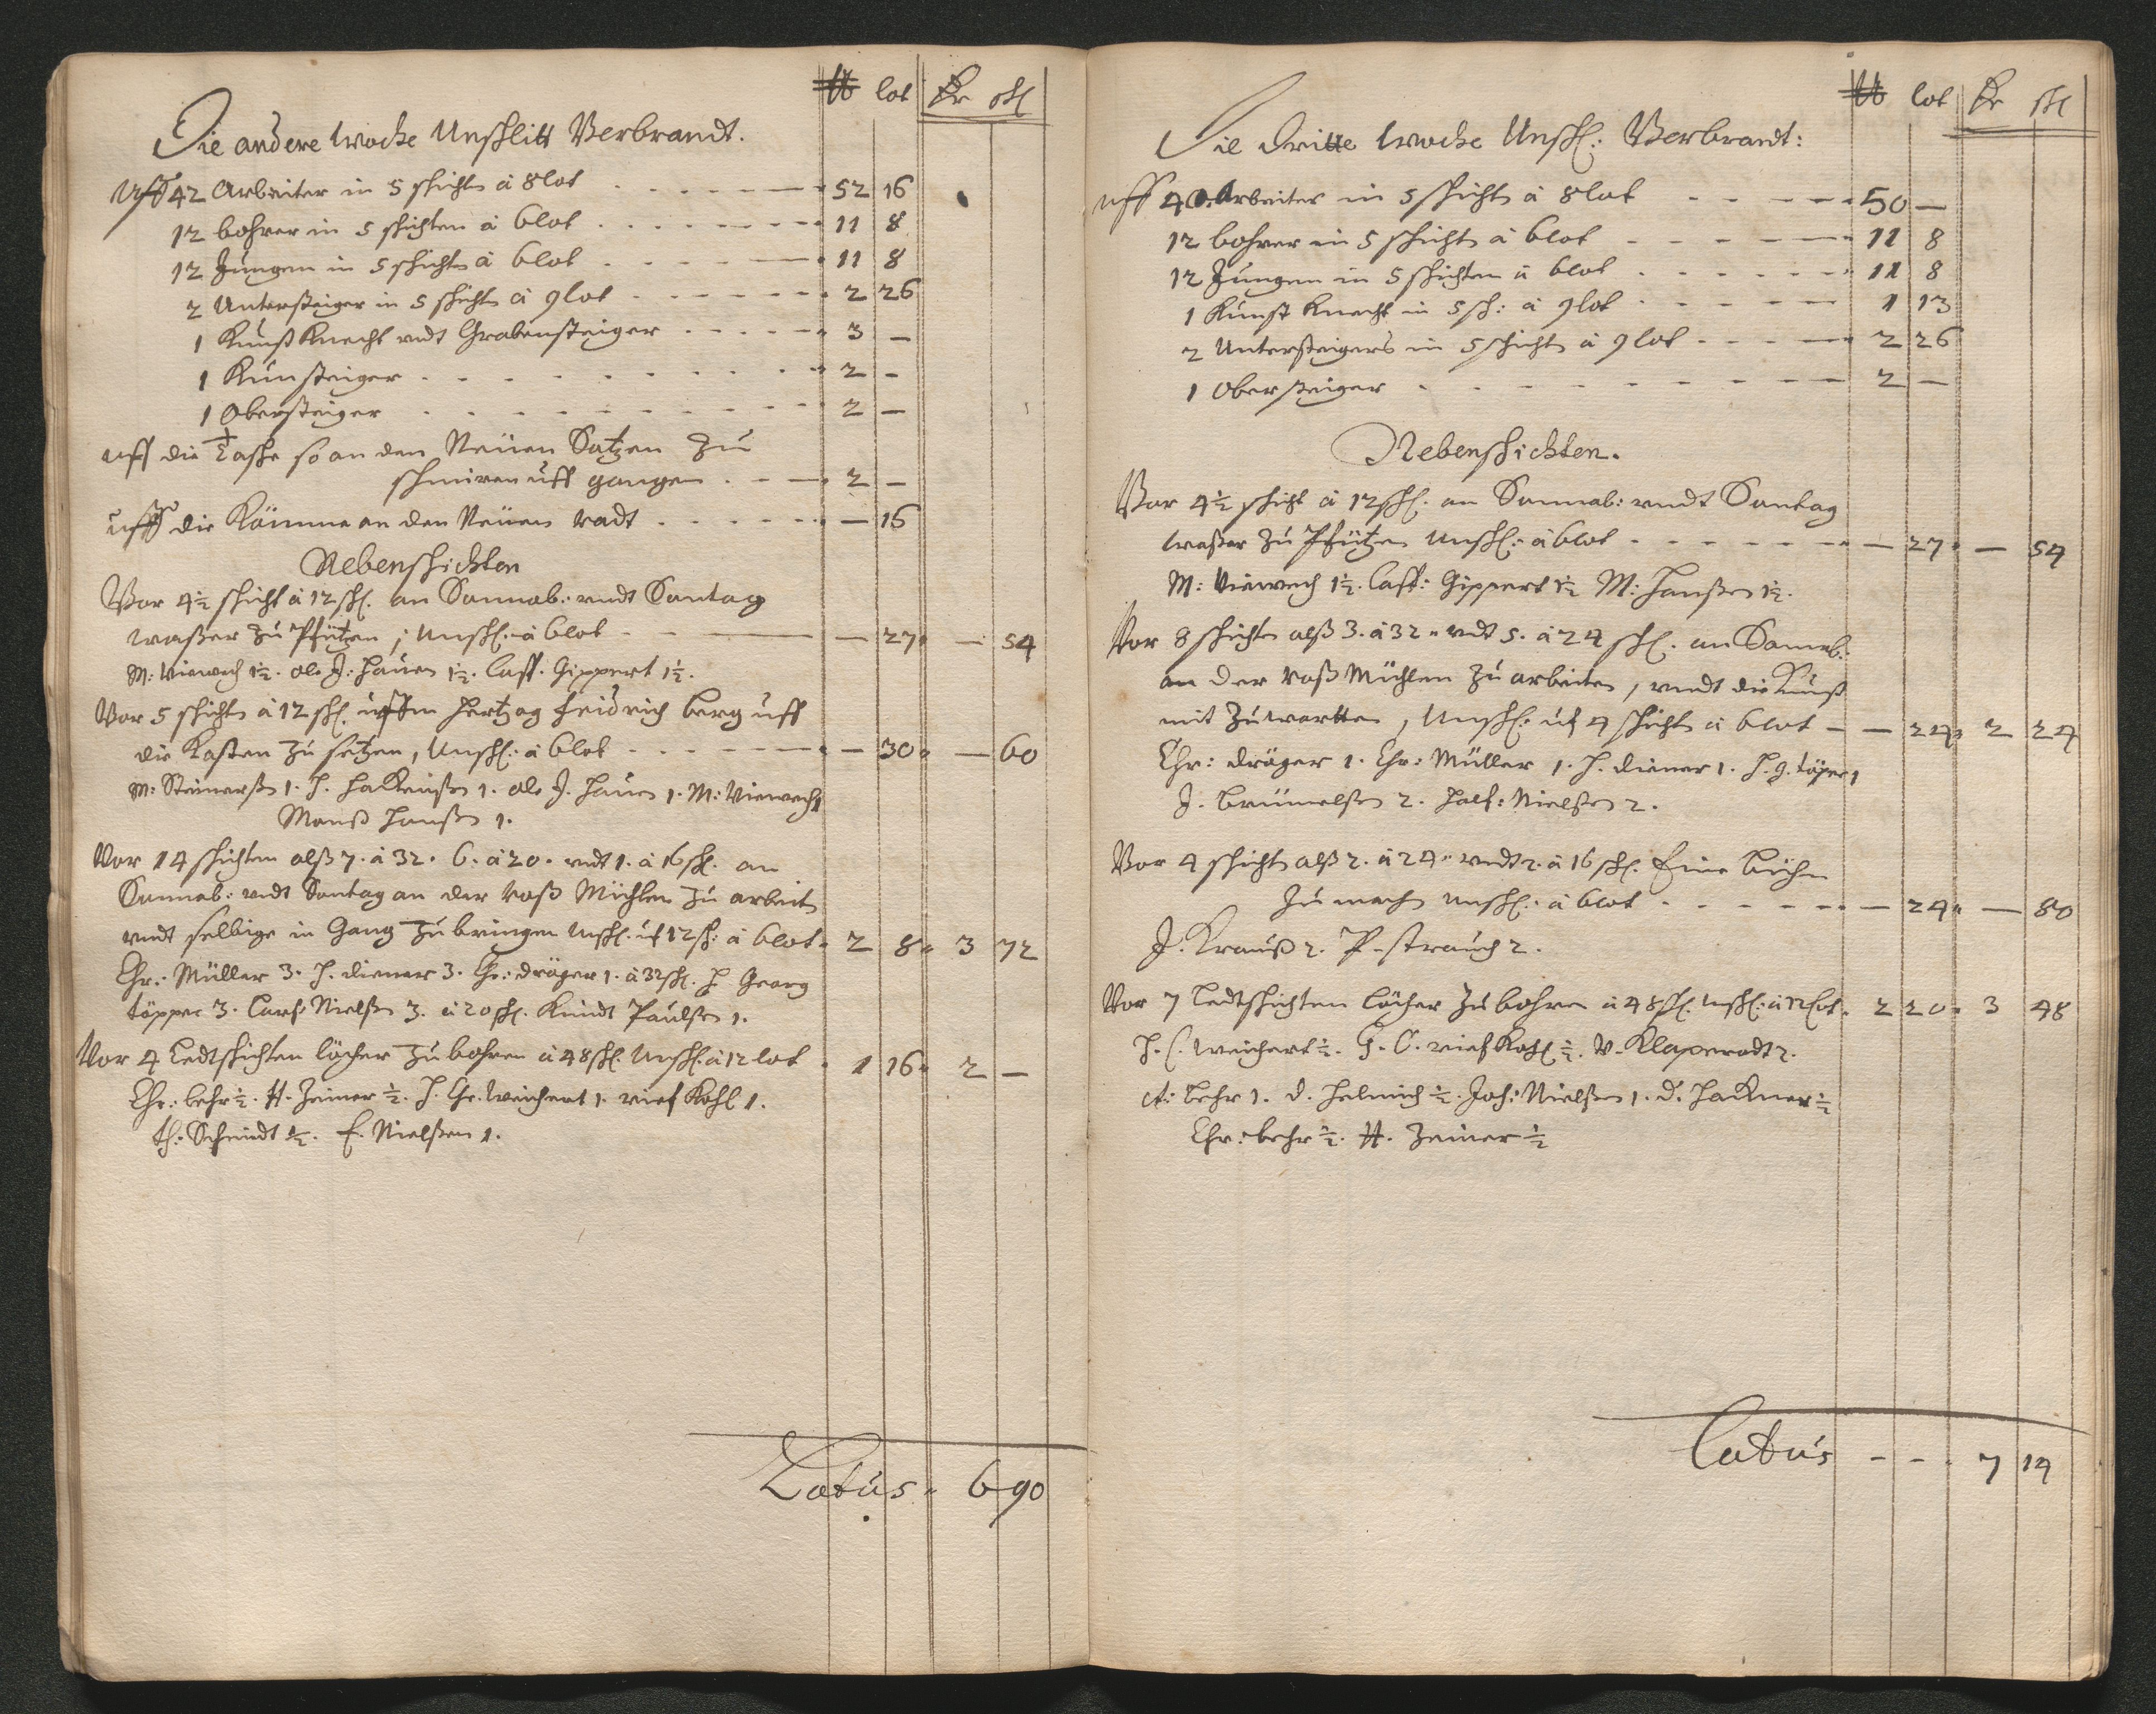 ℔ lot Rr ßl
Die andere woche Unschlitt Verbrandt.
Uff 42 Arbeiter in 5 schicht à 8 lot - - - 52 16
12 bohrer in 5 schichten à 6 lot - - - 11 8
12 Jungen in 5 schicht à 6 lot - - - 11 8
2 Untersteiger in 5 schicht à 9 lot - - - 2 26
1 Kunst Knecht undt Grabensteiger - - - 3 —
1 Kunsteiger - - - 2 —
1 Obersteiger - - - 2 —
uff die Tasche so an den Neuen Satzen zu
schmiren uff gangen - - - 2 —
uff die Kämme an den Neuen radt - - - — 16
Nebenschichten
Vor 4½ schicht à 12 ßl. an Sonnab: undt Sontag
waßer zu Pfützen, Unschl: à 6 lot - - - — 27 — 54
M: Viewech 1½. Ole J: Hauen 1½. Cast. Gippert 1½.
Vor 5 schicht à 12 ßl. ufm Hertzog Feidrich berg uff
die Kasten zu setzen, Unschl: à 6 lot - - - — 30 — 60
M: 1. H. 1. Ole J. Hauen 1. M: Viewech 1
Monß Hanßen 1.
Vor 14 schichten alß 7. à 32. 6. à 20. undt 1. à 16 ßl. an
Sonnab: undt Sontag an der roß Mühlen zu arbeiten
undt selbige in Gang zu bringen Unschl. uf 12 sch: à 6 lot 2 8 3 72
Chr: Müller 3. H. diener 3. Chr: dräger 1. à 32 ßl. H Georg
töpper 3. Nielßen 3. à 20 ßl. Knudt Paulßen 1.
Vor 4 Ledtschichten löcher zu bohren à 48 ßl. Unschl. à 12 lot 1 16 2 —
Chr: behr ½. H. Zeiner ½. H. Chr. Weichert 1. rief Kohl 1.
th: Schmidt ½. E. Nielßen 1.
Latus 6 90
℔ lot Rr ßl
Die dritte woche Unschl: Verbrandt:
uff 40 Arbeiter in 5 schicht à 8 lot - - - 50 —
12 bohrer in 5 schicht à 6 lot - - - 11 8
12 Jungen in 5 schichten à 6 lot - - - 11 8
1 Kunst Knecht in 5 sch: à 9 lot - - - 1 13
2 Untersteigers in 5 schicht à 9 lot - - - 2 26
1 Obersteiger - - - 2 —
Nebenschichten.
Vor 4½ schicht à 12 ßl. an Sonnab: undt Sontag
waßer zu Pfützen Unschl: à 6 lot - - - — 27 — 54
M: Viewech 1½. Cast: Gippert 1½ M: Hanßen 1½.
Vor 8 schichten alß 3. à 32 undt 5. à 24 ßl. an Sonnab:
an der roß Mühlen zu arbeiten, undt die Kunst
mit zu wartten, Unschl. uf 4 schicht à 6 lot — — 24 2 24
Chr: dräger 1. Chr: Müller 1. H. diener 1. H. G. töper 1
J. 2. Half: Nielßen 2.
Vor 4 schicht alß 2. à 24 undt 2. à 16 ßl. Eine bühn
zu machen unschl: à 6 lot - - - — 24 — 80
J. Krauß 2. P. strauch 2.
Vor 7 Ledtschichten löcher zu bohren à 48 ßl. unschl: à 12 lot 2 20 3 48
H. C. Weichert ½. G. C. rief Kohl ½. V. Klaperodt 2.
A: behr 1. d. Helmich ½. Joh: Nielßen 1. d. Hackner ½
Chr: behr ½. H. Zeiner ½
Latus - - - 7 14